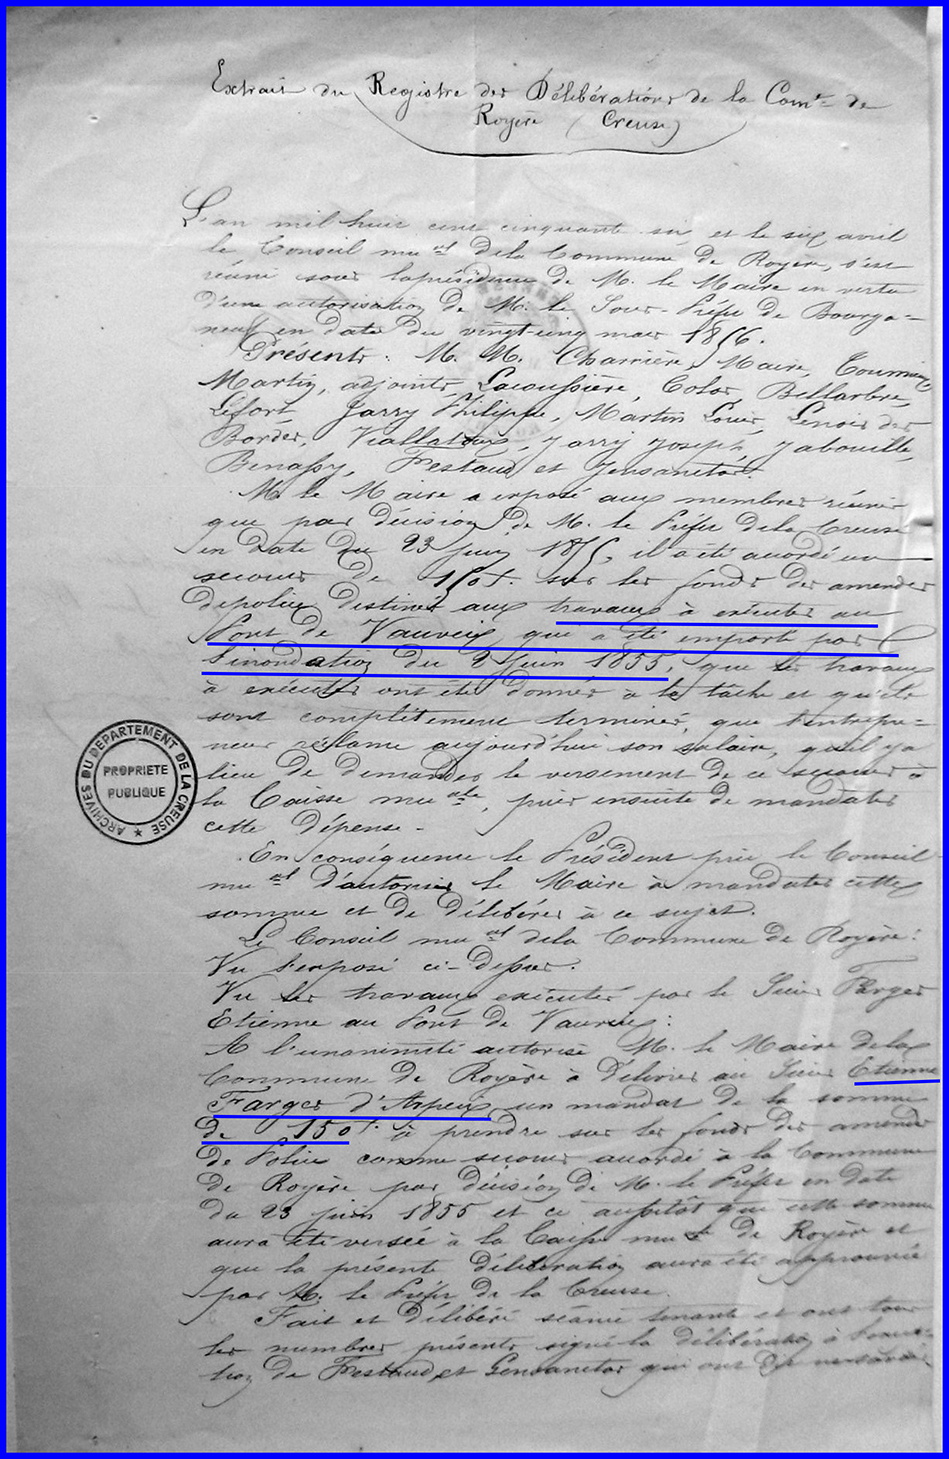 Extrait du Registre des Délibérations de la Comne de
Royère (Creuse)
L'an mil huit cent cinquante six, et le six avril
le Conseil mual dela Commune de Royère, s'est
réuni sous laprésidence de M. le Maire en vertu
d'une autorisation de M. le Sous-Préfet de Bourga=
neuf en date du vingt-cinq mars 1856.
Présents: M. M. Charrière, Maire,
Martin, adjoints, Lacoussière, Colas, Bellarbre,
Lefort, Jarry Philippe, Martin Louis, Lenoir des
Bordes, Viallatoux, Jarry Joseph, Jabouille,
Benassy, Festaud et Gensanetas.
M. le Maire a exposé aux membres réunis
que par décision de M. le Préfet dela Creuse
en date du 23 juin 1855, il a été accordé un
secours de 150f. sur les fonds des amendes
depolice destinés aux travaux à exécuter au
Pont de Vauveix, que a été emporté par
l'inondation du 2 juin 1855, que les travaux
à exécuter ont été donnés à la tâche et qu'ils
sont complètement terminés, que l'entrepre=
neur réclame aujourd'hui son salaire, qu'il y a
lieu de demander le versement de ce secours à
la Caisse muale, pour ensuite de mandater
cette dépense.
En conséquence le Président prie le Conseil
mual d'autoriser le Maire à mandater cette
somme et de délibérer à ce sujet.
Le Conseil mual dela Commune de Royère:
Vu l'exposé ci-dessus.
Vu les travaux exécutés par le Sieur Farges
Etienne au Pont de Vauveix:
A l'unanimité autorise M. le Maire dela
Commune de Royère à délivrer au Sieur Etienne
Farges d'Arpeix, un mandat de la somme
de 150f. à prendre sur les fonds des amendes
de Police comme secours accordé à la Commune
de Royère par décision de M. le Préfet en date
du 23 juin 1855 et ce aussitôt que cette somme
aura été versée à la Caisse mule de Royère et
que la présente délibération aura été approuvée
par M. le Préfet de la Creuse.
Fait et délibéré séance tenante et ont tous
les membres présents signé la délibération à l'excep=
tion de Festaud et Gensanetas qui ont
ARCHIVES DU DEPARTEMENT DE LA CREUSE
PROPRIETE
PUBLIQUE